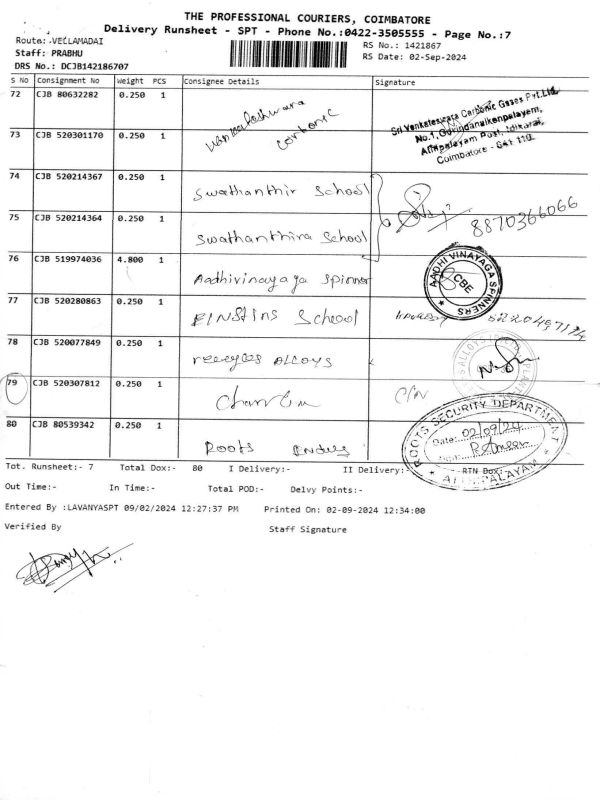 THE PROFESSIONAL COURIERS, COIMBATORE
Delivery Runsheet - SPT - Phone No.:0422-3505555 - Page No.:7
Route: VELLAMADAI
Staff: PRABHU
DRS No.: DCJB142186707
RS No.: 1421867
RS Date: 02-Sep-2024
S No Consignment No Weight PCS Consignee Details Signature
72 CJB 80632282 0.250 1
carbonic
Sri Venkateswara Carbonic Gases Pvt.Ltd.
No.1, Govindanaikenpalayem,
Athipalayam Post, Idikarai,
Coimbatore - 641 110.
73 CJB 520301170 0.250 1
74 CJB 520214367 0.250 1 Swathanthir School
8870366066
75 CJB 520214364 0.250 1 Swathanthira School
76 CJB 519974036 4.800 1 Aadhivinayaga Spinner
AADHIVINAYAGA SPINNERS
CBE
77 CJB 520280863 0.250 1 EINSTINS School
78 CJB 520077849 0.250 1 ALLOYS
79 CJB 520307812 0.250 1
80 CJB 80539342 0.250 1 Roots
ROOTS SECURITY DEPARTMENT
Date: 02/09/24
ATHIPALAYAM
Tot. Runsheet:- 7 Total Dox:- 80 I Delivery:- II Delivery:- RTN Dox:-
Out Time:- In Time:- Total POD:- Delvy Points:-
Entered By :LAVANYASPT 09/02/2024 12:27:37 PM Printed On: 02-09-2024 12:34:00
Verified By Staff Signature